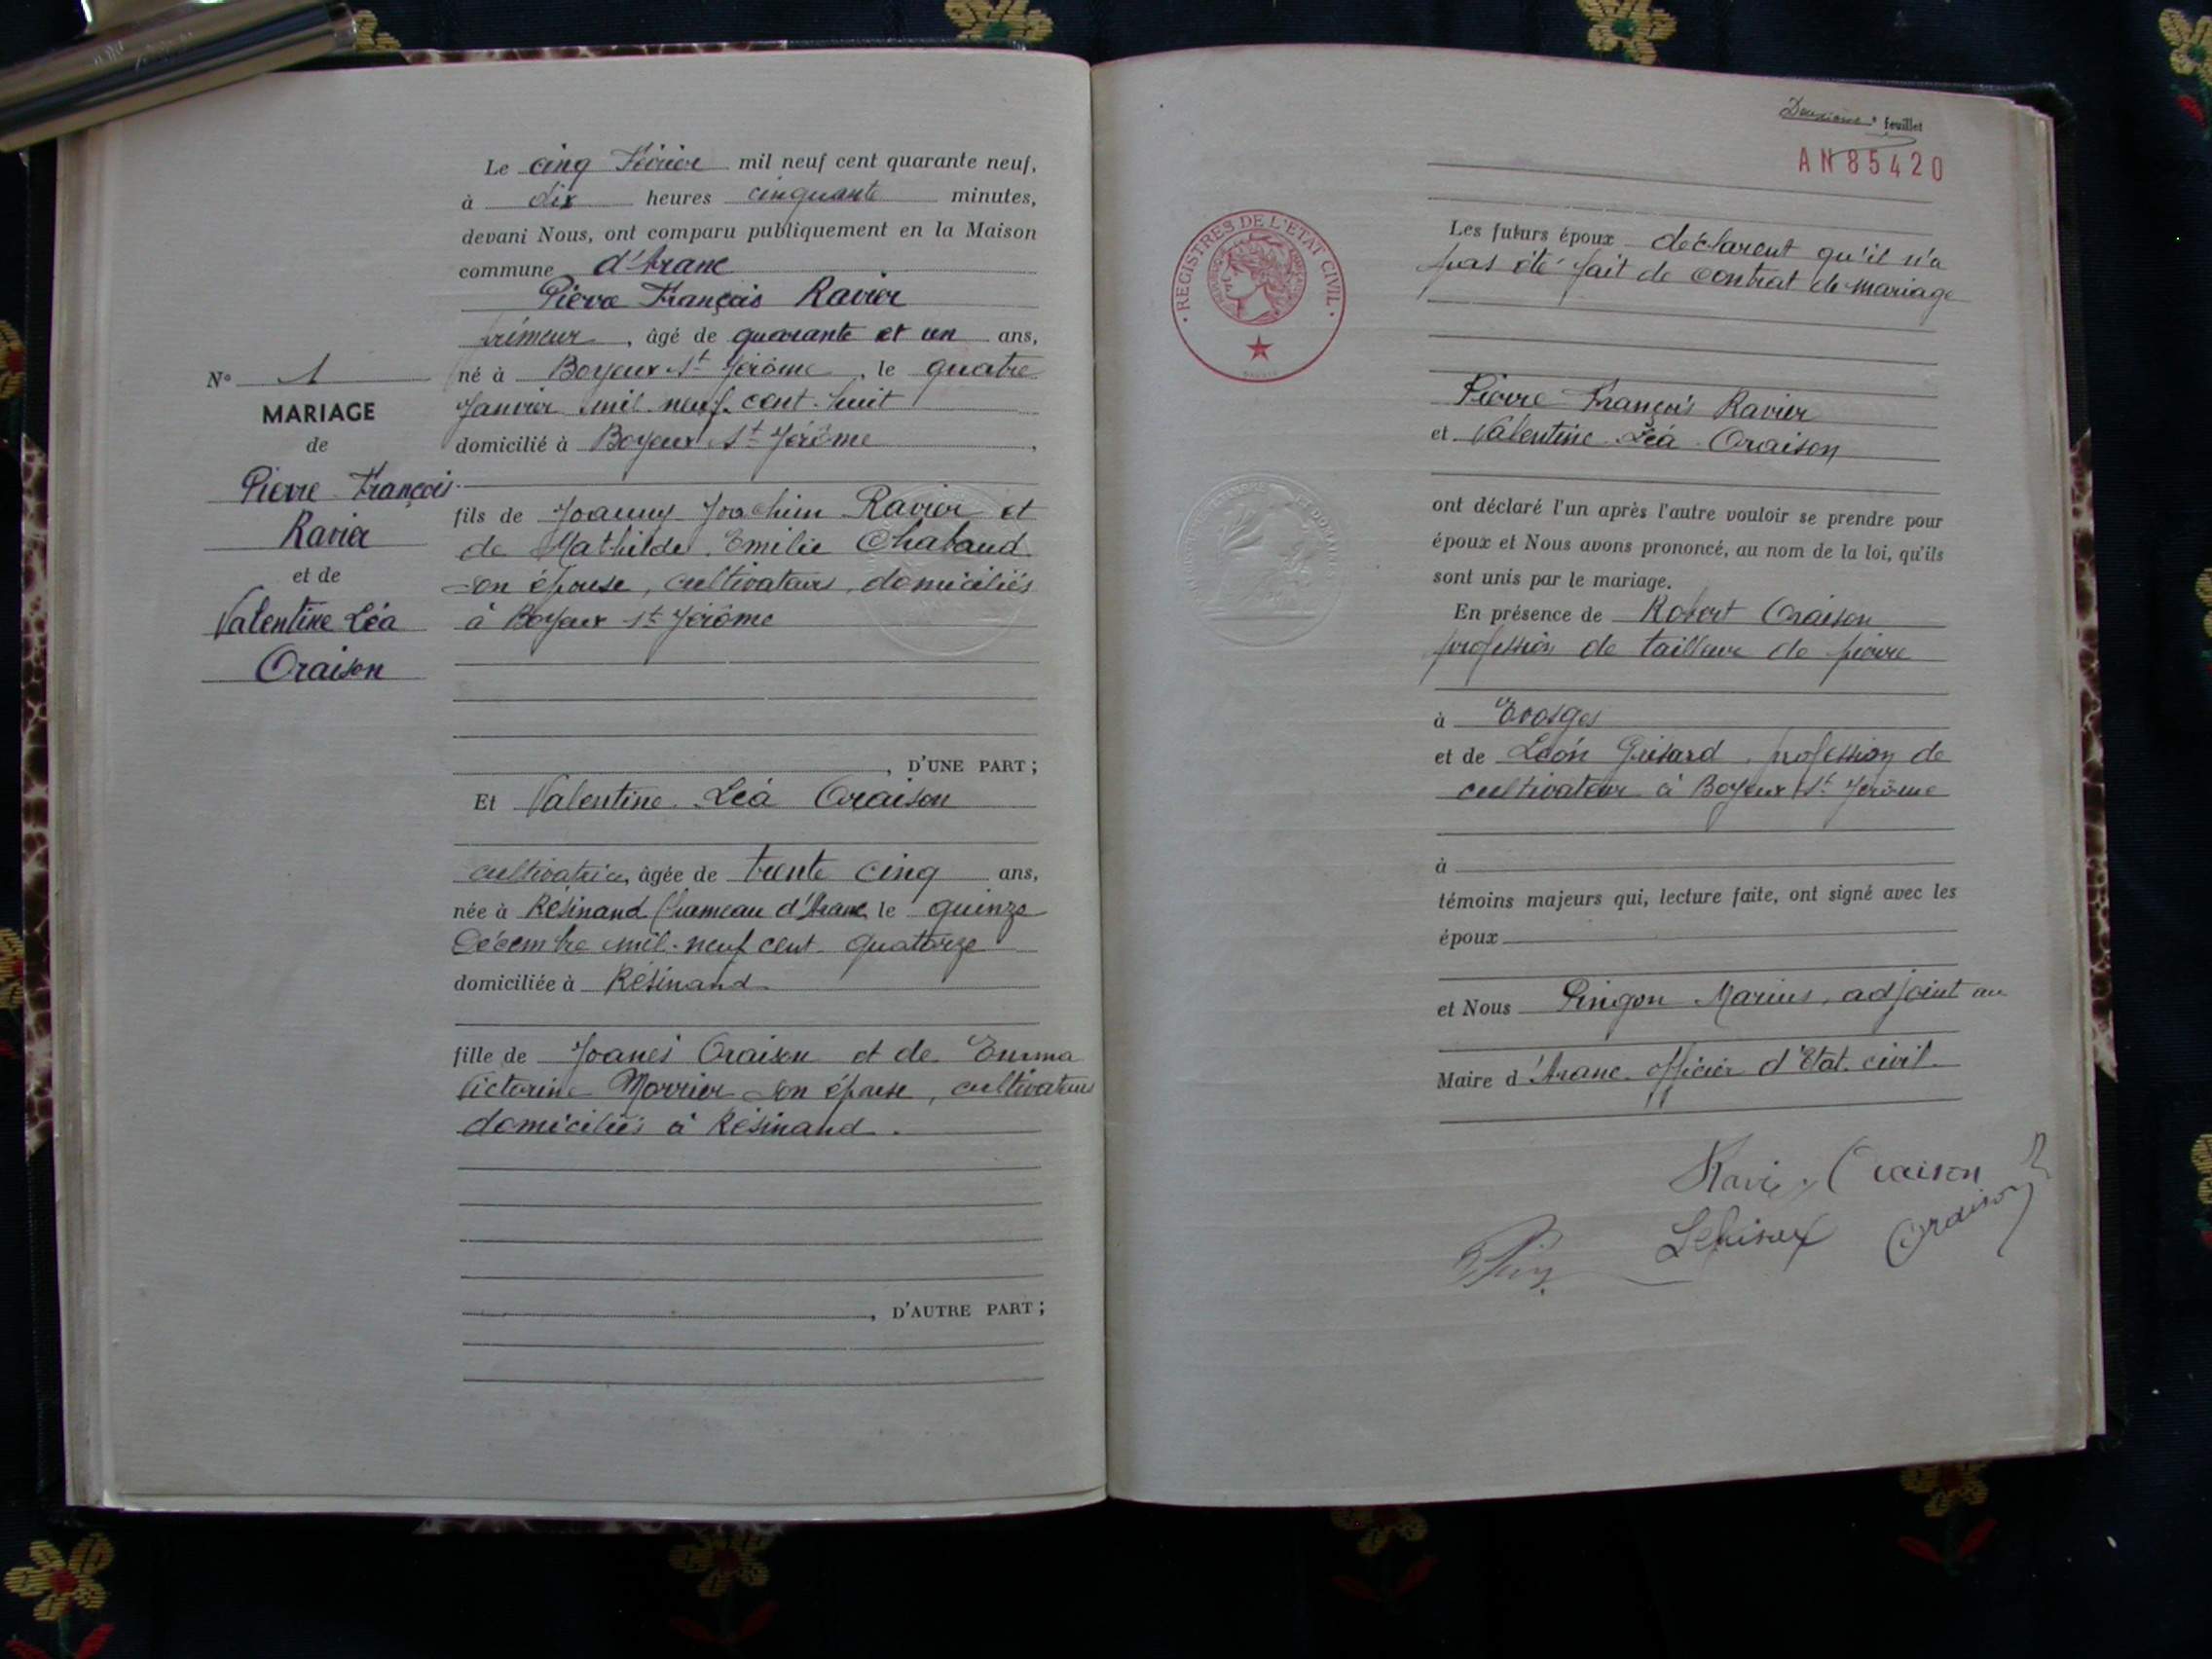 Le cinq Février mil neuf cent quarante neuf,
à dix heures cinquante minutes,
devant Nous, ont comparu publiquement en la Maison
commune d'Aranc
Pierre François Ravier
primeur, âgé de quarante et un ans,
né à Boyeux St Jérôme, le quatre
Janvier mil neuf cent huit
domicilié à Boyeux St Jérôme,
fils de Joanny Joachim Ravier et
de Mathilde Emilie Chabaud
son épouse, cultivateurs, domiciliés
à Boyeux St Jérôme
D'UNE PART;
N° 1
MARIAGE
de
Pierre François
Ravier
et de
Valentine Léa
Oraison
Et Valentine Léa Oraison
cultivatrice, âgée de trente cinq ans,
née à Résinand hameau d'Aranc le quinze
Décembre mil neuf cent quatorze
domiciliée à Résinand
fille de Joanès Oraison et de Emma
Victorine Morrier son épouse, cultivateurs
domiciliés à Résinand.
D'AUTRE PART;
Deuxième feuillet
AN85420
REGISTRES DE L'ETAT CIVIL
Les futurs époux déclarent qu'il n'a
pas été fait de contrat de mariage
Pierre François Ravier
et Valentine Léa Oraison
ont déclaré l'un après l'autre vouloir se prendre pour
époux et Nous avons prononcé, au nom de la loi, qu'ils
sont unis par le mariage.
En présence de Robert Oraison
profession de tailleur de pierre
à Evosges
et de Léon Grisard profession de
cultivateur à Boyeux St Jérôme
à
témoins majeurs qui, lecture faite, ont signé avec les
époux
et Nous Pingon Marius, adjoint au
Maire d'Aranc officier d'Etat civil.
Ravier Oraison
Oraison